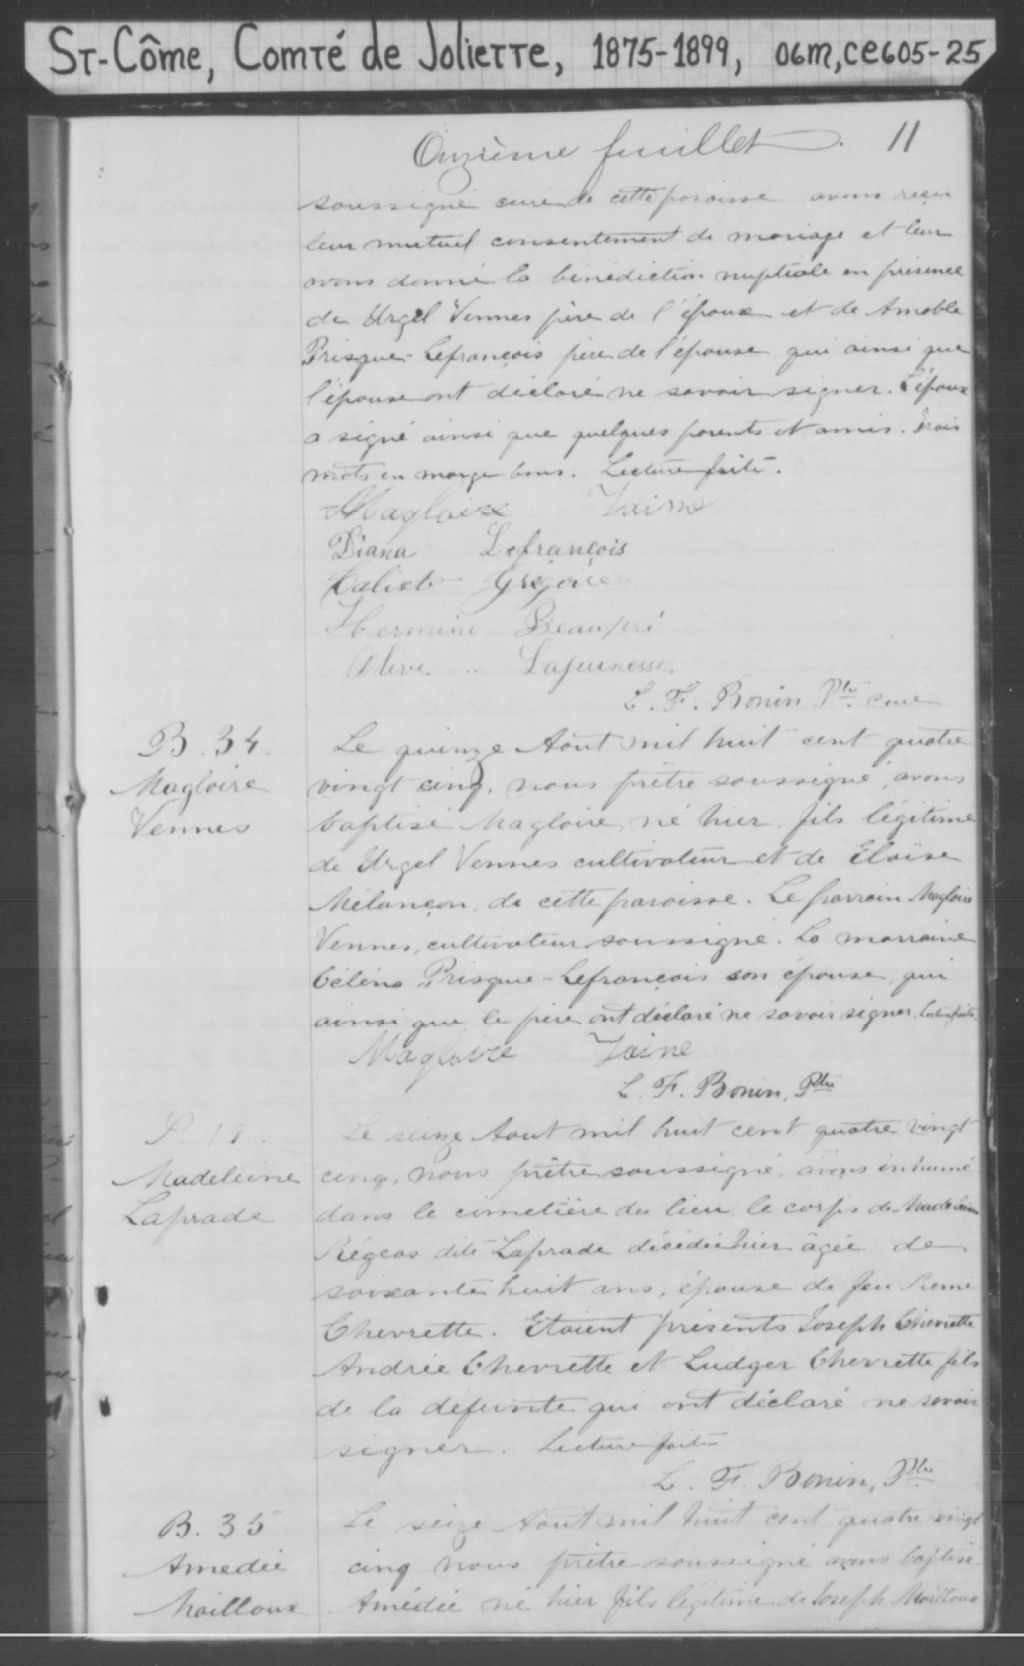 St-Côme, Comté de Joliette, 1875-1899, 06M,CE605-25
Onzième feuillet. 11
soussigné curé de cette paroisse avons reçu
leur mutuel consentement de mariage et leur
avons donné la bénédiction nuptiale en présence
de Urgel Vennes père de l'époux et de Amable
Prisque-Lefrançois père de l'épouse qui ainsi que
l'épouse ont déclaré ne savoir signer. L'époux
a signé ainsi que quelques parents et amis. Trois
mots en marge bons. Lecture faite.
Magloire Vaine
Diana Lefrançois
Calixte Grégoire
Hermine Beaupré
Lajeunesse
L. F. Bonin Ptre curé
B. 34.
Magloire
Vennes
Le quinze Août mil huit cent quatre
vingt cinq, nous prêtre soussigné, avons
baptisé Magloire, né hier, fils légitime
de Urgel Vennes cultivateur et de Eloïse
Mélançon, de cette paroisse. Le parrain Magloire
Vennes, cultivateur soussigné. La marraine
Célina Prisque-Lefrancois son épouse, qui
ainsi que le père ont déclaré ne savoir signer. Lecture faite.
Magloire Vaine
L. F. Bonin, Ptre
Madeleine
Laprade
Le seize Aout mil huit cent quatre vingt
cinq, nous prêtre soussigné, avons inhumé
dans le cimetière du lieu le corps de Madeleine
Régeas dite Laprade décédée hier âgée de
soixante huit ans, épouse de feu
Chevrette. Etaient présents Joseph Chevrette
Andrée Chevrette et Ludger Chevrette fils
de la défunte qui ont déclaré ne savoir
signer. Lecture faite
L. F. Bonin, Ptre
B. 35
Amedée
Mailloux
Le seize Août mil huit cent quatre vingt
cinq nous prêtre soussigné avons baptisé
Amédée né hier fils légitime de Joseph Mailloux